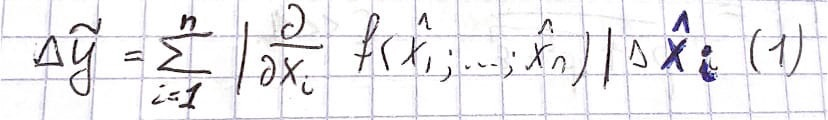 Δỹ = ∑ⁿᵢ₌₁ |∂/∂xᵢ f(x̂₁;...;x̂ₙ)| Δx̂ᵢ (1)